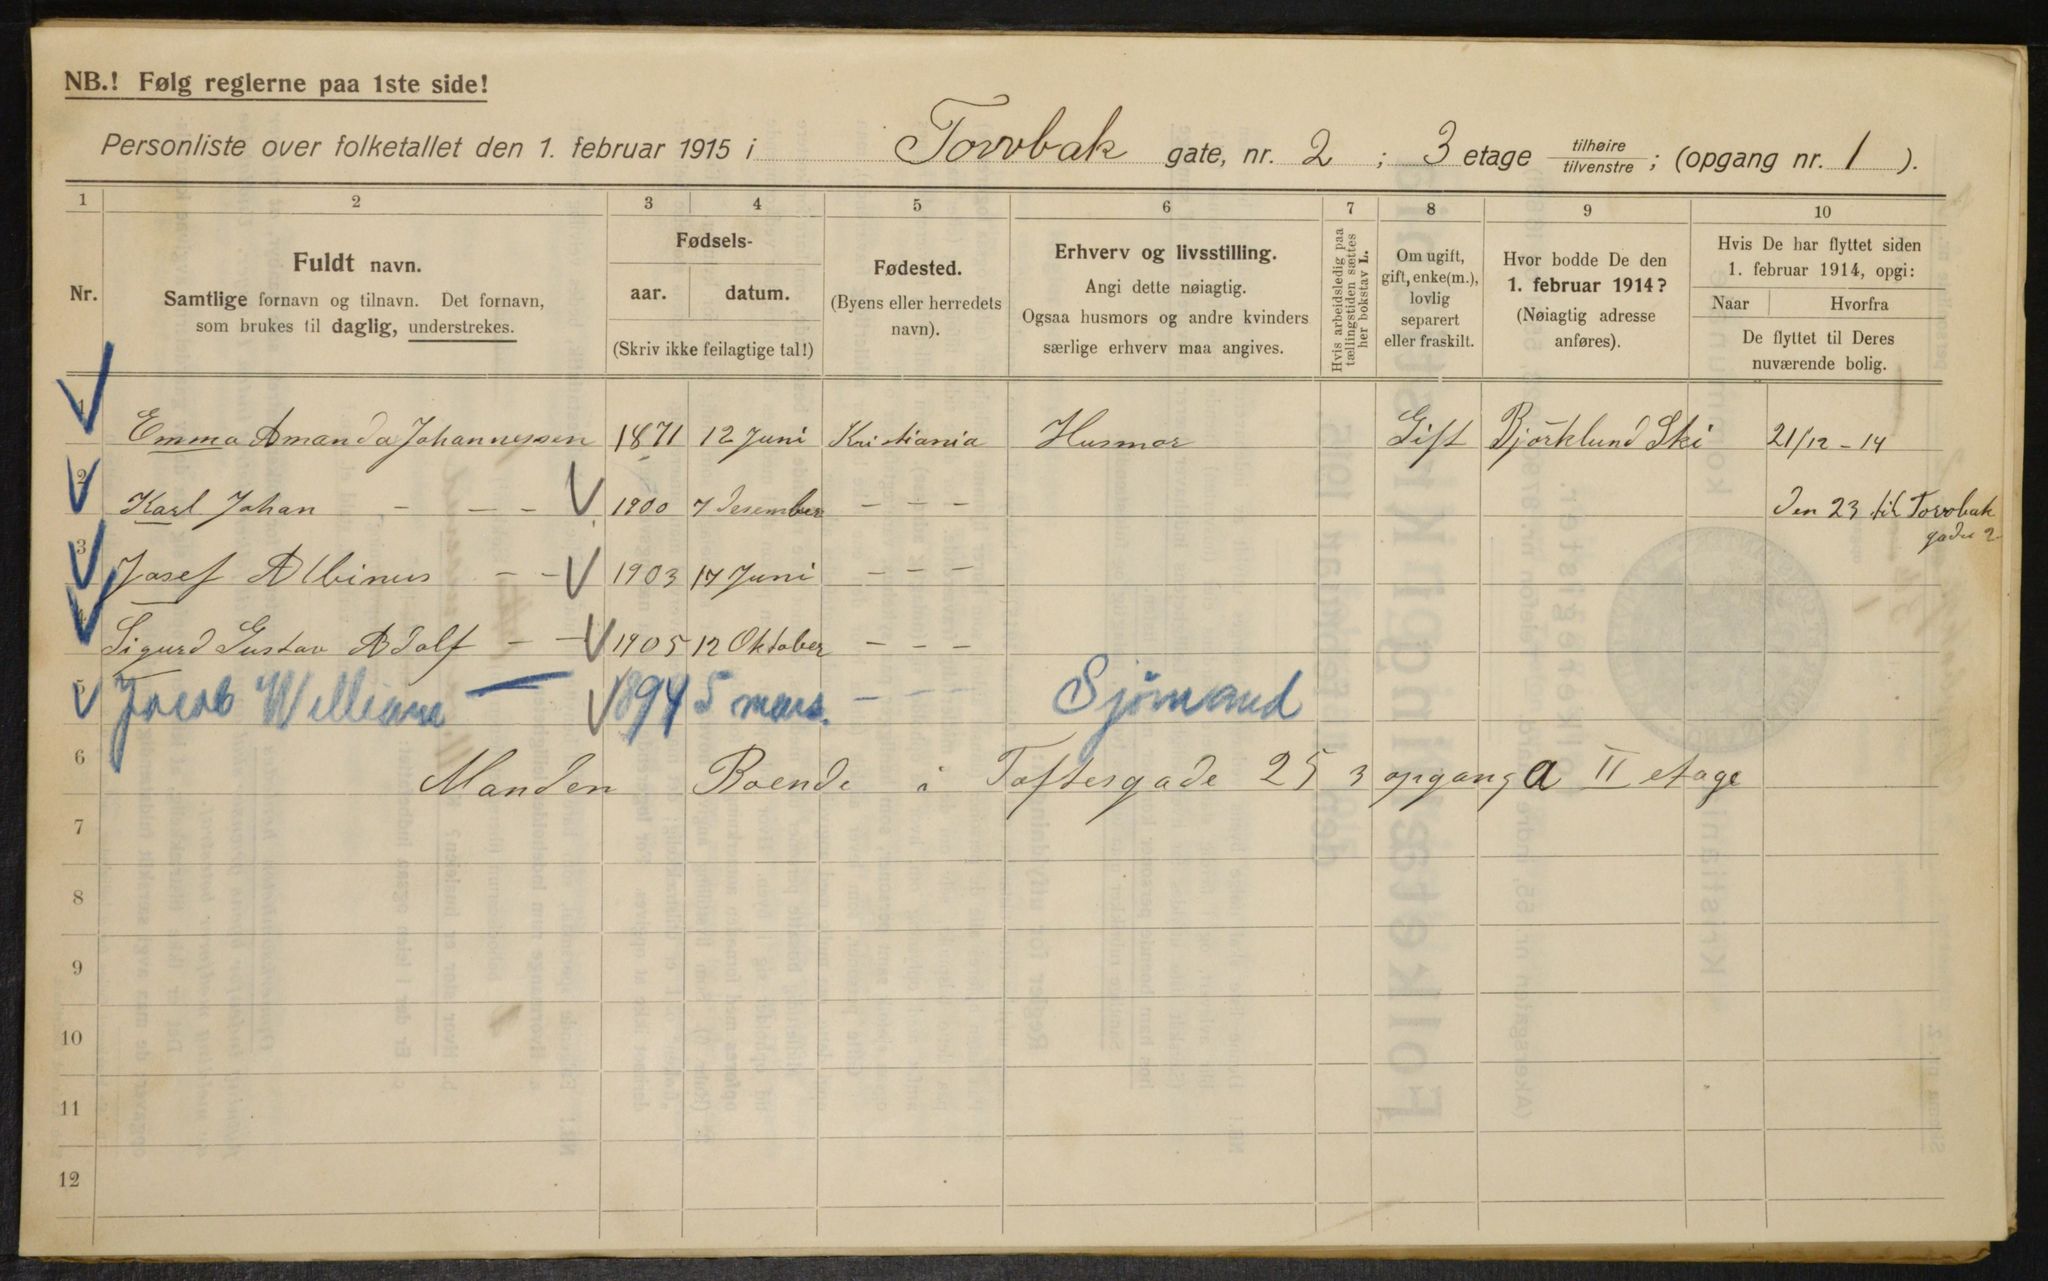 NB.! Følg reglerne paa 1ste side!
Personliste over folketallet den 1. februar 1915 i Torvbak gate, nr. 2 ; 3 etage tilhøire / tilvenstre ; (opgang nr. 1 ).
1 2 3 4 5 6 7 8 9 10
Nr.
Fuldt navn.
Samtlige fornavn og tilnavn. Det fornavn,
som brukes til daglig, understrekes.
Fødsels-
aar. datum.
(Skriv ikke feilagtige tal!)
Fødested.
(Byens eller herredets
navn).
Erhverv og livsstilling.
Angi dette nøiagtig.
Ogsaa husmors og andre kvinders
særlige erhverv maa angives.
Hvis arbeidsledig paa
tællingstiden sættes
her bokstav L.
Om ugift,
gift, enke(m.),
lovlig
separert
eller fraskilt.
Hvor bodde De den
1. februar 1914?
(Nøiagtig adresse
anføres).
Hvis De har flyttet siden
1. februar 1914, opgi:
Naar Hvorfra
De flyttet til Deres
nuværende bolig.
1 Emma Amanda Johannessen 1871 12 Juni Kristiania Husmor Gift Björklund Ski 21/12 - 14
2 Karl Johan - - - 1900 7 Desember - - - Den 23 til Torvbak
gaden 2
3 Josef Albinus - - 1903 17 Juni - - -
4 Sigurd Gustav Adolf - - 1905 12 Oktober - - -
5 Jacob William — 1894 5 mars. - - - Sjömand
6 Manden Boende i Toftesgade 25 3 opgang a II etage
7
8
9
10
11
12